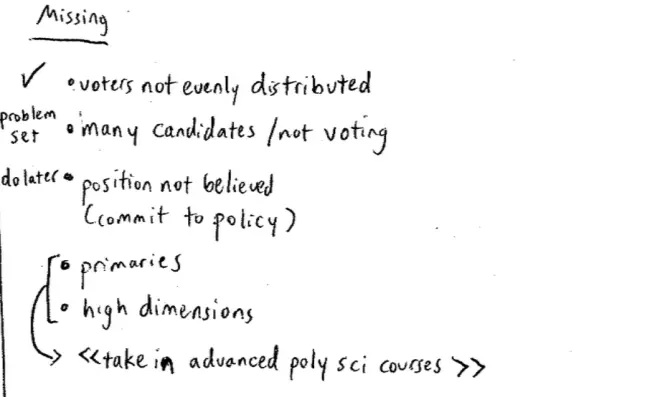 Missing
✓ • voters not evenly distributed
problem set • many candidates / not voting
do later • position not believed
(commit to policy)
• primaries
• high dimensions
<<take in advanced poly sci courses>>